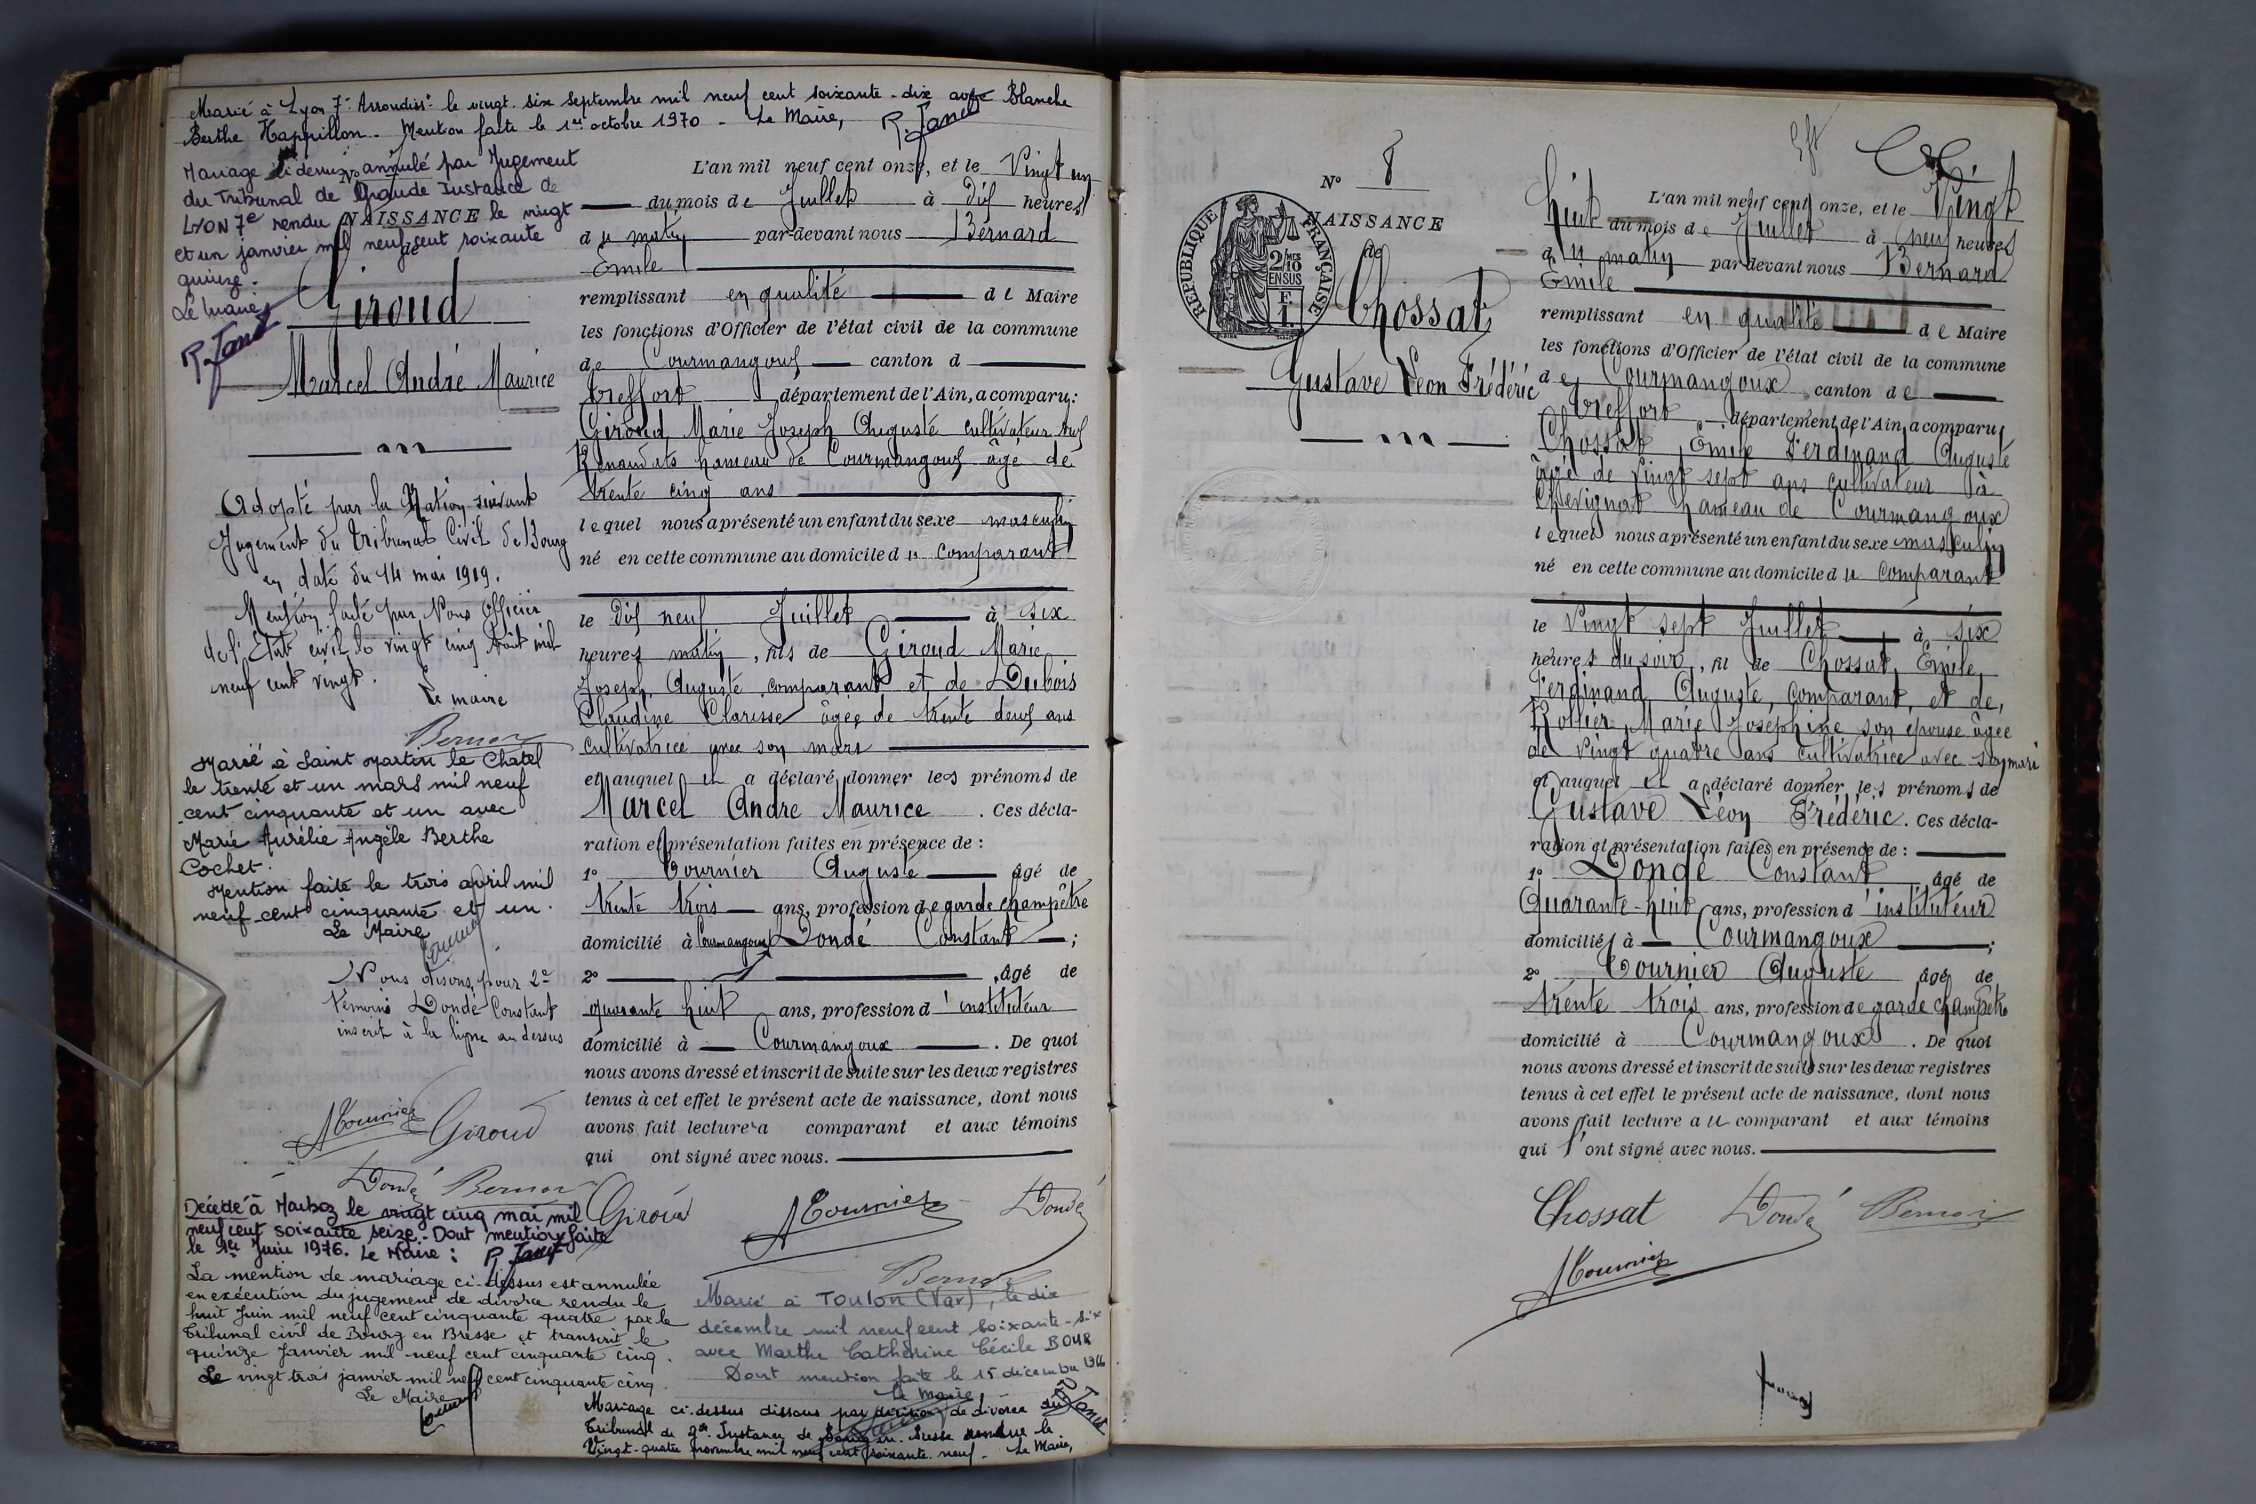 Marié à Lyon 7e Arrondisst le vingt-six septembre mil neuf cent soixante-dix avec Blanche
Berthe Happillon. Mention faite le 1er octobre 1970 - Le Maire,
Mariage ci-dessus annulé par Jugement
du Tribunal de Grande Instance de
LYON 7e rendu le vingt
et un janvier mil neuf cent soixante
quinze.
Le Maire
No
NAISSANCE
de
Giroud
Marcel André Maurice
Adopté par la Nation suivant
Jugement du Tribunal Civil de Bourg
en date du 14 mai 1919.
Mention faite par Nous Officier
de l'Etat civil le vingt cinq Août mil
neuf cent vingt.
Le maire
Marié à Saint Martin le Châtel
le trente et un mars mil neuf
cent cinquante et un avec
Marie Aurélie Angèle Berthe
Cochet.
Mention faite le trois avril mil
neuf cent cinquante et un.
Le Maire
Nous disons pour 2e
témoins Dondé Constant
inscrit à la ligne au dessus
ATournier Giroud
Dondé Bernard
Décédé à Marboz le vingt cinq mai mil
neuf cent soixante seize. Dont mention faite
le 1er Juin 1976. Le Maire :
La mention de mariage ci-dessus est annulée
en exécution du jugement de divorce rendu le
huit Juin mil neuf cent cinquante quatre par le
Tribunal civil de Bourg en Bresse et transcrit le
quinze Janvier mil neuf cent cinquante cinq.
Le vingt trois janvier mil neuf cent cinquante cinq
Le Maire
L'an mil neuf cent onze, et le Vingt un
du mois de Juillet à dix heures
du matin par-devant nous Bernard
Emile
remplissant en qualité de Maire
les fonctions d'Officier de l'état civil de la commune
de Courmangoux canton d
Treffort département de l'Ain, a comparu :
Giroud Marie Joseph Auguste cultivateur aux
Renaudats hameau de Courmangoux âgé de
trente cinq ans
lequel nous a présenté un enfant du sexe masculin
né en cette commune au domicile du comparant
le dix neuf Juillet à six
heures matin, fils de Giroud Marie
Joseph Auguste, comparant et de Dubois
Claudine Clarisse âgée de trente deux ans
cultivatrice avec son mari
et auquel il a déclaré donner les prénoms de
Marcel Andre Maurice. Ces décla-
ration et présentation faites en présence de :
1° Tournier Auguste âgé de
trente trois ans, profession de garde champêtre
domicilié à Courmangoux Dondé Constant ;
2° , âgé de
quarante huit ans, profession d'instituteur
domicilié à Courmangoux. De quoi
nous avons dressé et inscrit de suite sur les deux registres
tenus à cet effet le présent acte de naissance, dont nous
avons fait lecture a comparant et aux témoins
qui ont signé avec nous.
Giroud ATournier Dondé
Bernard
Marié à TOULON (Var), le dix
décembre mil neuf cent soixante-six
avec Marthe Catherine Cécile
Dont mention faite le 15 décembre 1966
Le Maire,
Mariage ci-dessus dissous par décision de divorce du
Tribunal de Gde Instance de Bourg en Bresse rendue le
Vingt-quatre novembre mil neuf cent soixante neuf. Le Maire,
No 8
NAISSANCE
de
RÉPUBLIQUE FRANÇAISE
2/10MES
EN SUS
Chossat
Gustave Léon Frédéric
L'an mil neuf cent onze, et le Vingt
huit du mois de Juillet à neuf heures
du matin par-devant nous Bernard
Emile
remplissant en qualité de Maire
les fonctions d'Officier de l'état civil de la commune
de Courmangoux canton de
Treffort département de l'Ain, a comparu
Chossat Emile Ferdinand Auguste
âgé de vingt sept ans cultivateur à
Chevignat hameau de Courmangoux
lequel nous a présenté un enfant du sexe masculin
né en cette commune au domicile du comparant
le Vingt sept Juillet à six
heures du soir, fil de Chossat Emile,
Ferdinand Auguste, comparant, et de,
Rollier Marie Josephine son epouse âgée
de vingt quatre ans cultivatrice avec son mari
et auquel il a déclaré donner les prénoms de
Gustave Léon Frédéric. Ces décla-
ration et présentation faites en présence de :
1° Dondé Constant âgé de
Quarante-huit ans, profession d'instituteur
domicilié à Courmangoux ;
2° Tournier Auguste âgé de
trente trois ans, profession de garde champêtre
domicilié à Courmangoux. De quoi
nous avons dressé et inscrit de suite sur les deux registres
tenus à cet effet le présent acte de naissance, dont nous
avons fait lecture au comparant et aux témoins
qui l'ont signé avec nous.
Chossat Dondé Bernard
ATournier